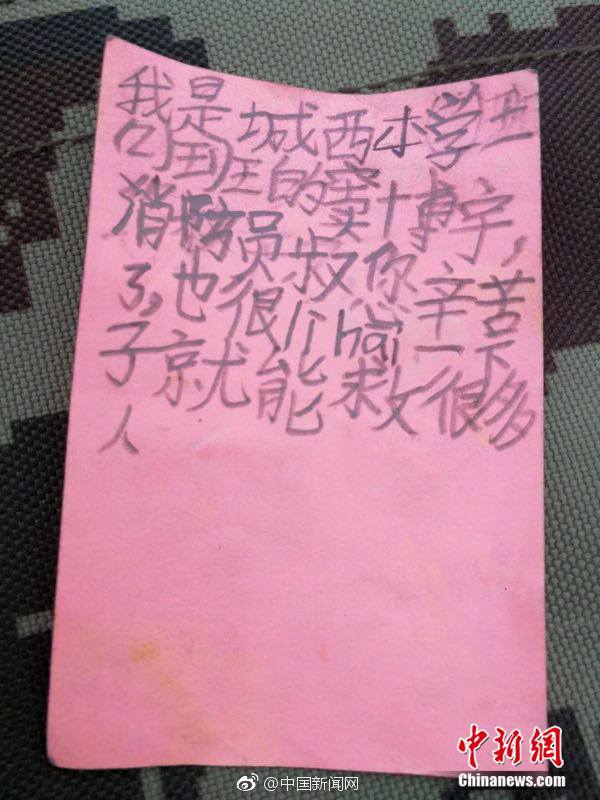 我是城西小学
班的窦博宇,
消防员叔你辛苦
了,也很hai一下
子就能救很多
人
中新网
Chinanews.com
@中国新闻网